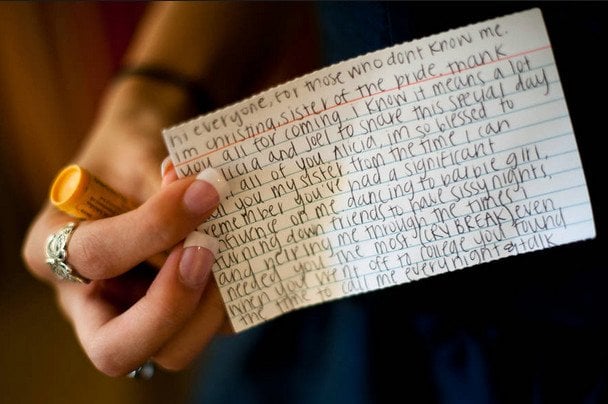 hi everyone. for those who dont know me.
im christina, sister of the pride. thank
you all for coming. I know it means a lot
Alicia and Joel to share this special day
all of you. Alicia, im so blessed to
you my sister. from the time I can
remember you've had a significant
influence on me. dancing to barbie girl,
turning down friends to have sissy nights,
and helping me through the times I
needed you the most. (CRY BREAK) even
when you went off to college you found
the time to call me every night & talk